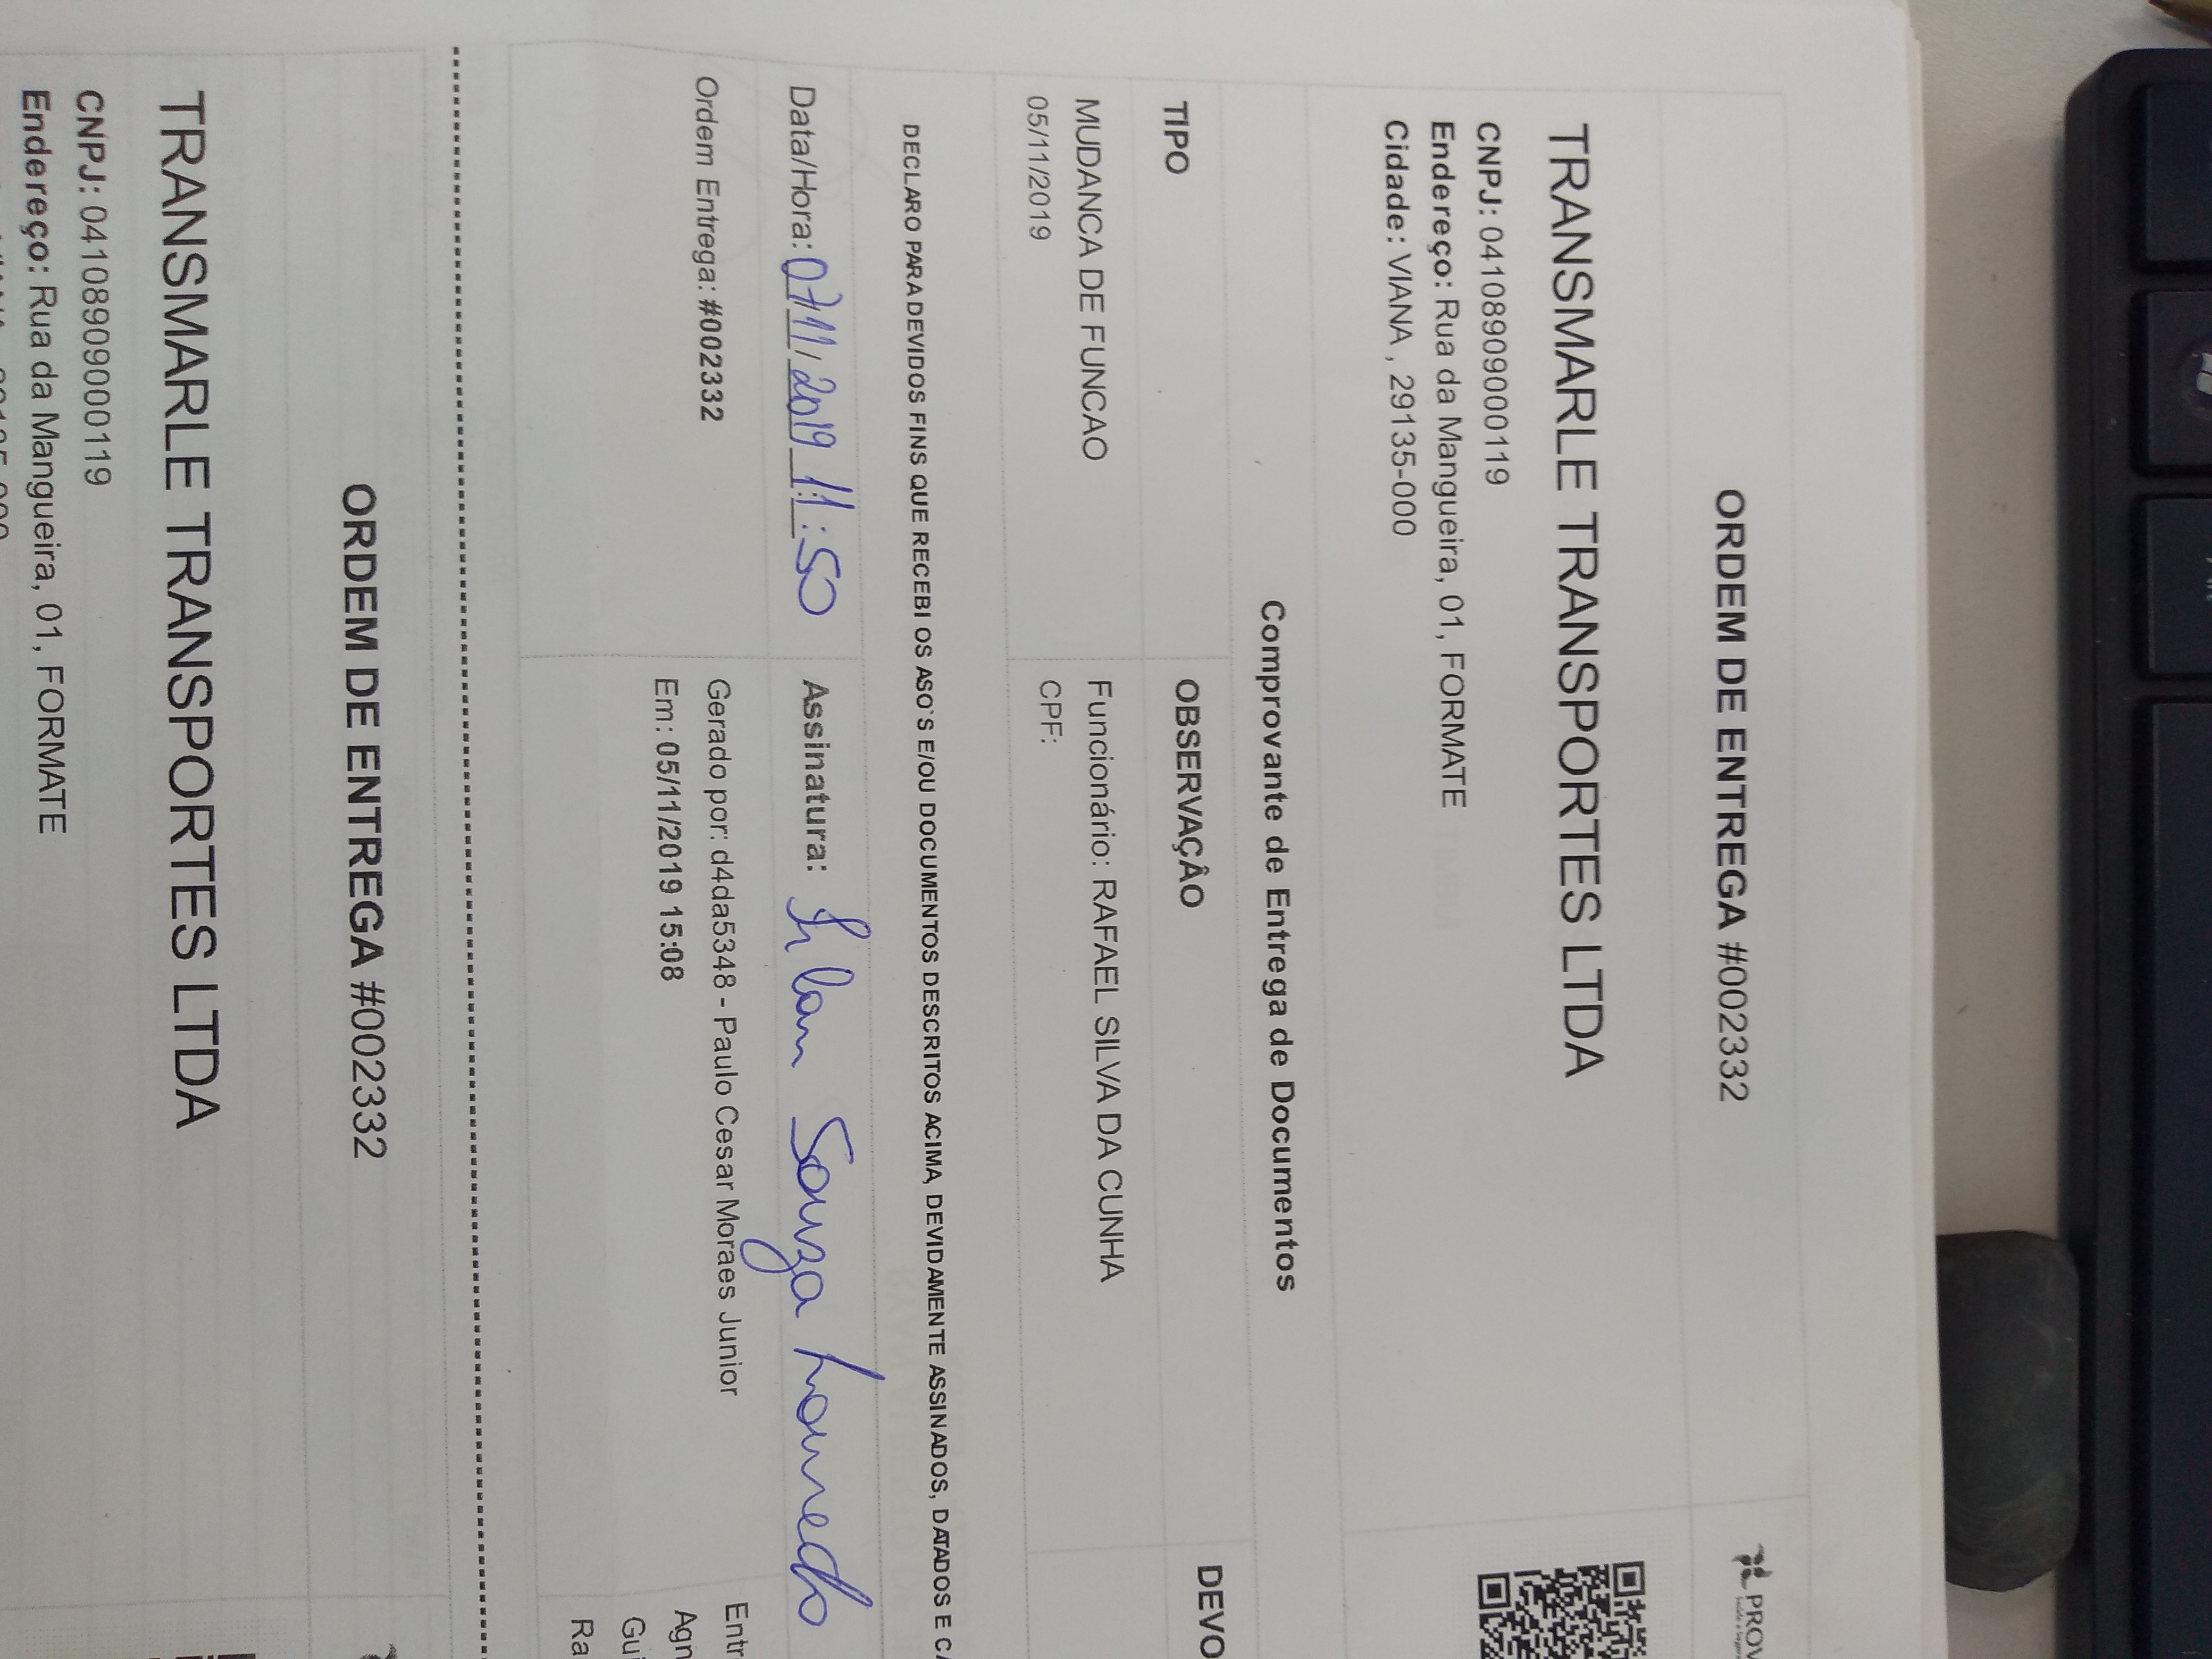 ORDEM DE ENTREGA #002332
PROV
TRANSMARLE TRANSPORTES LTDA
CNPJ: 04108909000119
Endereço: Rua da Mangueira, 01, FORMATE
Cidade: VIANA , 29135-000
Comprovante de Entrega de Documentos
TIPO OBSERVAÇÂO DEVO
MUDANCA DE FUNCAO Funcionário: RAFAEL SILVA DA CUNHA
05/11/2019 CPF:
DECLARO PARA DEVIDOS FINS QUE RECEBI OS ASO`S E/OU DOCUMENTOS DESCRITOS ACIMA, DEVIDAMENTE ASSINADOS, DATADOS E CA
Data/Hora: 07/11/2019 11:50 Assinatura: Souza
Ordem Entrega: #002332 Gerado por: d4da5348 - Paulo Cesar Moraes Junior Entr
Em: 05/11/2019 15:08 Agn
Gui
Ra
ORDEM DE ENTREGA #002332
TRANSMARLE TRANSPORTES LTDA
CNPJ: 04108909000119
Endereço: Rua da Mangueira, 01, FORMATE